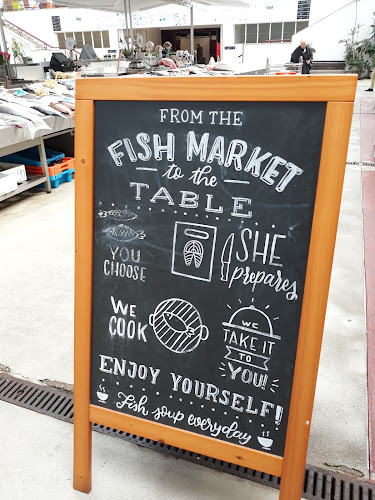 FROM THE
FISH MARKET
to the
TABLE
YOU
CHOOSE
SHE
prepares
WE
COOK
WE
TAKE IT
TO
YOU!
ENJOY YOURSELF!
Fish soup everyday